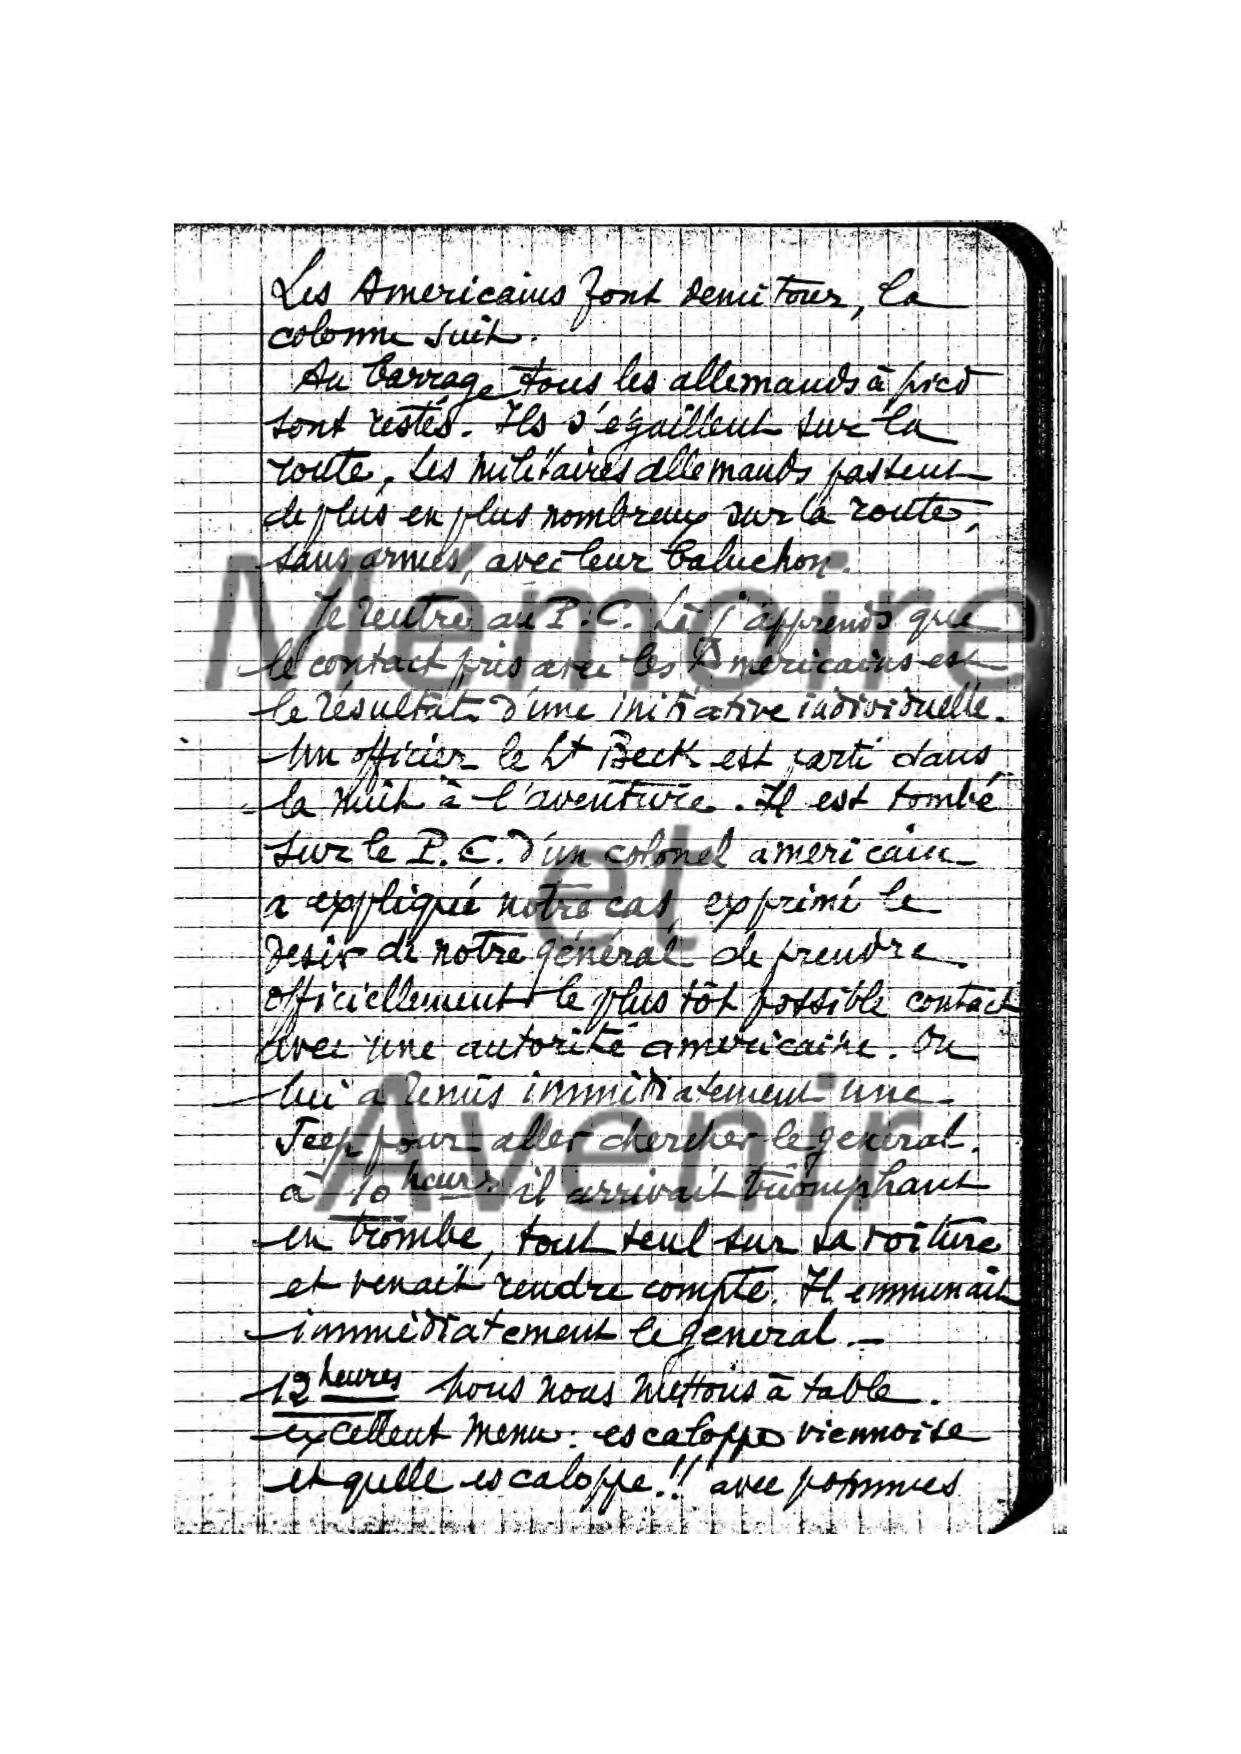 Les Americains font demi tour, la
colonne suit.
Au barrage tous les allemands à pied
sont restés. Ils s'égaillent sur la
route. Les militaires allemands passent
de plus en plus nombreux sur la route,
sans armes, avec leur baluchon.
Je rentre au P.C. Là j'apprends que
le contact pris avec les Americains est
le résultat d'une initiative individuelle.
Un officier le Lt Beck est parti dans
la nuit à l'aventure. Il est tombé
sur le P.C. d'un colonel americain
a expliqué notre cas, exprimé le
desir de notre général de prendre
officiellement le plus tôt possible contact
avec une autorité americaine. On
lui a remis immédiatement une
Jeep pour aller chercher le general.
à 10 heures il arrivait triomphant
en trombe, tout seul sur sa voiture
et venait rendre compte. Il emmenait
immédiatement le general.-
12 heures nous nous mettons à table.
excellent menu : escaloppe viennoise
et quelle escaloppe!! avec pommes
Mémoire
et
Avenir